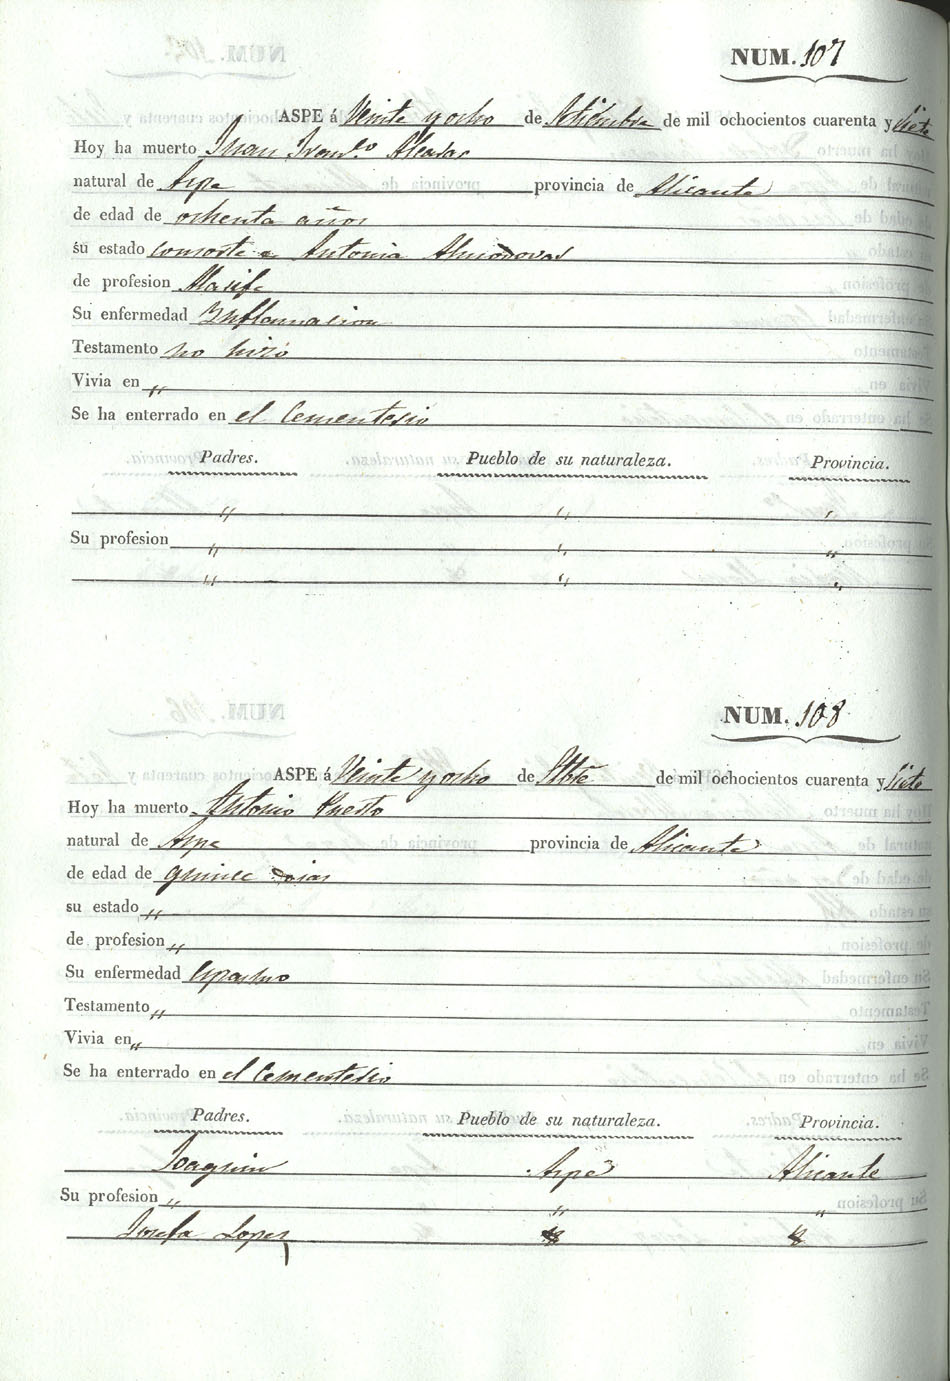 NUM. 107
ASPE á Veinte y ocho de Setiembre de mil ochocientos cuarenta y siete
Hoy ha muerto Juan
natural de Aspe provincia de Alicante
de edad de ochenta años
su estado consorte Antonia Almodovar
de profesion
Su enfermedad Inflamacion
Testamento no hizo
Vivia en „
Se ha enterrado en el Cementerio
Padres. Pueblo de su naturaleza. Provincia.
„ „ „
Su profesion „ „ „
„ „ „
NUM. 108
ASPE á Veinte y ocho de Stbre de mil ochocientos cuarenta y siete
Hoy ha muerto Antonio Puerto
natural de Aspe provincia de Alicante
de edad de quince dias
su estado „
de profesion „
Su enfermedad
Testamento „
Vivia en „
Se ha enterrado en el Cementerio
Padres. Pueblo de su naturaleza. Provincia.
Joaquin Aspe Alicante
Su profesion „ „ „
Josefa Lopez